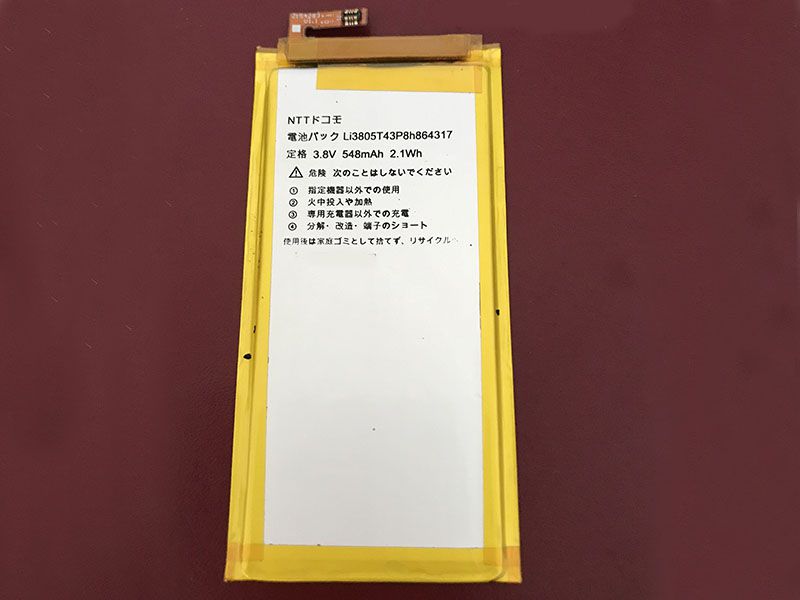 NTTドコモ
電池パック Li3805T43P8h864317
定格 3.8V 548mAh 2.1Wh
危険 次のことはしないでください
① 指定機器以外での使用
② 火中投入や加熱
③ 専用充電器以外での充電
④ 分解・改造・端子のショート
使用後は家庭ゴミとして捨てず、リサイクルへ